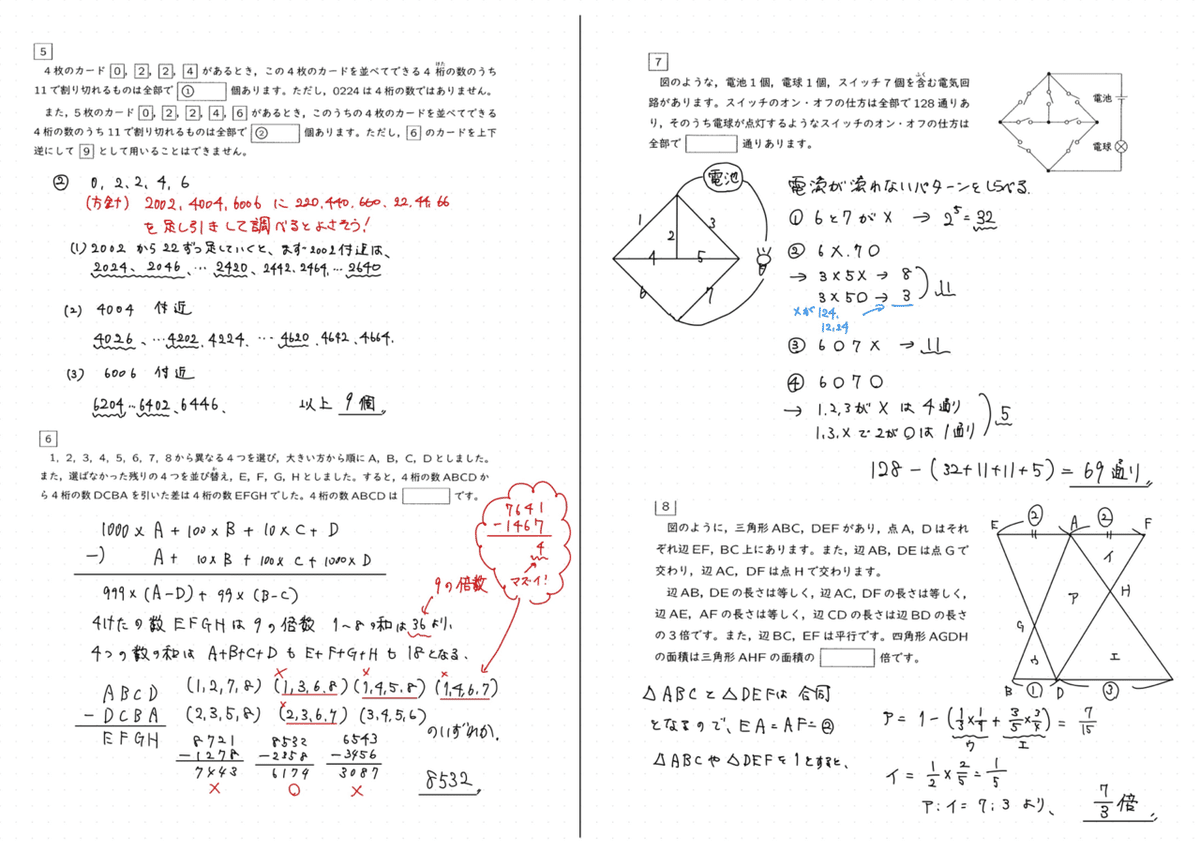 5
4枚のカード 0, 2, 2, 4 があるとき，この4枚のカードを並べてできる4桁の数のうち
11で割り切れるものは全部で ① 個あります。ただし，0224は4桁の数ではありません。
また，5枚のカード 0, 2, 2, 4, 6 があるとき，このうちの4枚のカードを並べてできる
4桁の数のうち11で割り切れるものは全部で ② 個あります。ただし，6 のカードを上下
逆にして 9 として用いることはできません。
② 0, 2, 2, 4, 6
(方針) 2002, 4004, 6006 に 220, 440, 660, 22, 44, 66
を足し引きして調べるとよさそう!
(1) 2002 から 22 ずつ足していくと、まず2002付近は、
2024、2046、… 2420、2442, 2464, … 2640
(2) 4004 付近
4026、…4202, 4224, … 4620, 4642, 4664.
(3) 6006 付近
6204…6402、6446、 以上 9個.
6
1，2，3，4，5，6，7，8から異なる4つを選び，大きい方から順にA，B，C，Dとしました。
また，選ばなかった残りの4つを並び替え，E，F，G，Hとしました。すると，4桁の数ABCDか
ら4桁の数DCBAを引いた差は4桁の数EFGHでした。4桁の数ABCDは です。
1000×A+100×B+10×C+D
−) A+ 10×B+100×C+1000×D
999×(A-D)+99×(B-C)
9の倍数
4けたの数EFGHは9の倍数 1〜8の和は36より、
4つの数の和は A+B+C+D も E+F+G+H も 18となる、
7641
−1467
4
マズイ!
ABCD
− DCBA
EFGH
(1,2,7,8) × (1,3,6,8) × (1,4,5,8) × (1,4,6,7)
(2,3,5,8) × (2,3,6,7) (3,4,5,6)
のいずれか.
8721 8532 6543
−1278 −2358 −3456
7443 6174 3087
× ○ ×
8532.
7
図のような，電池1個，電球1個，スイッチ7個を含む電気回
路があります。スイッチのオン・オフの仕方は全部で128通りあ
り，そのうち電球が点灯するようなスイッチのオン・オフの仕方は
全部で 通りあります。
電池
電球
電池
1
2
3
4
5
6
7
電流が流れないパターンをしらべる.
① 6と7が× → 2⁵=32
② 6×,7○
→ 3×5× → 8
3×5○ → 3
11
×が124,
12,24
③ 6○7× → 11
④ 6○7○
→ 1,2,3が× は 4通り
1,3,×で2が○は 1通り
5
128−(32+11+11+5)=69通り
8
図のように，三角形ABC，DEFがあり，点A，Dはそれ
ぞれ辺EF，BC上にあります。また，辺AB，DEは点Gで
交わり，辺AC，DFは点Hで交わります。
辺AB，DEの長さは等しく，辺AC，DFの長さは等しく，
辺AE，AFの長さは等しく，辺CDの長さは辺BDの長さ
の3倍です。また，辺BC，EFは平行です。四角形AGDH
の面積は三角形AHFの面積の 倍です。
E ② A ② F
イ
H
ア
G
ウ
エ
B ① D ③
△ABCと△DEFは合同
となるので、EA=AF=②
△ABCや△DEFを1とすると、
ア=1−(1/3×1/4+3/5×3/4)=7/15
ウ エ
イ=1/2×2/5=1/5
ア:イ=7:3 より、
7/3倍